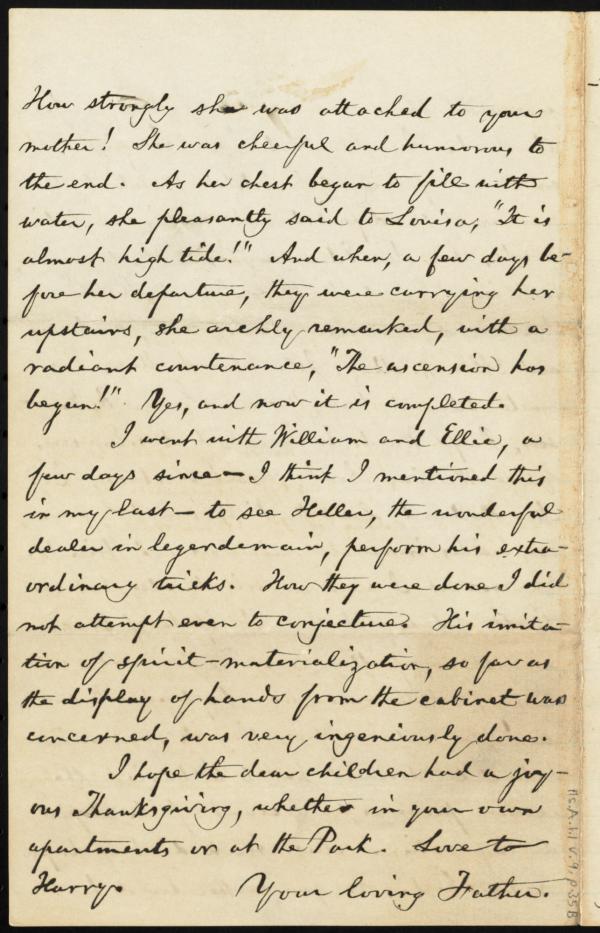 How strongly she was attached to your
mother! She was cheerful and humorous to
the end. As her chest began to fill with
water, she pleasantly said to Louisa, "It is
almost high tide!" And when, a few days be-
fore her departure, they were carrying her
upstairs, she archly remarked, with a
radiant countenance, "The ascension has
begun!" Yes, and now it is completed.
I went with William and Ellie, a
few days since — I think I mentioned this
in my last — to see Heller, the wonderful
dealer in legerdemain, perform his extra-
ordinary tricks. How they were done I did
not attempt even to conjecture. His imita-
tion of spirit-materialization, so far as
the display of hands from the cabinet was
concerned, was very ingeniously done.
I hope the dear children had a joy-
ous Thanksgiving, whether in your own
apartments or at the Park. Love to
Harry.
Your loving Father.
Ms.A.1.1 v.9, p.35B